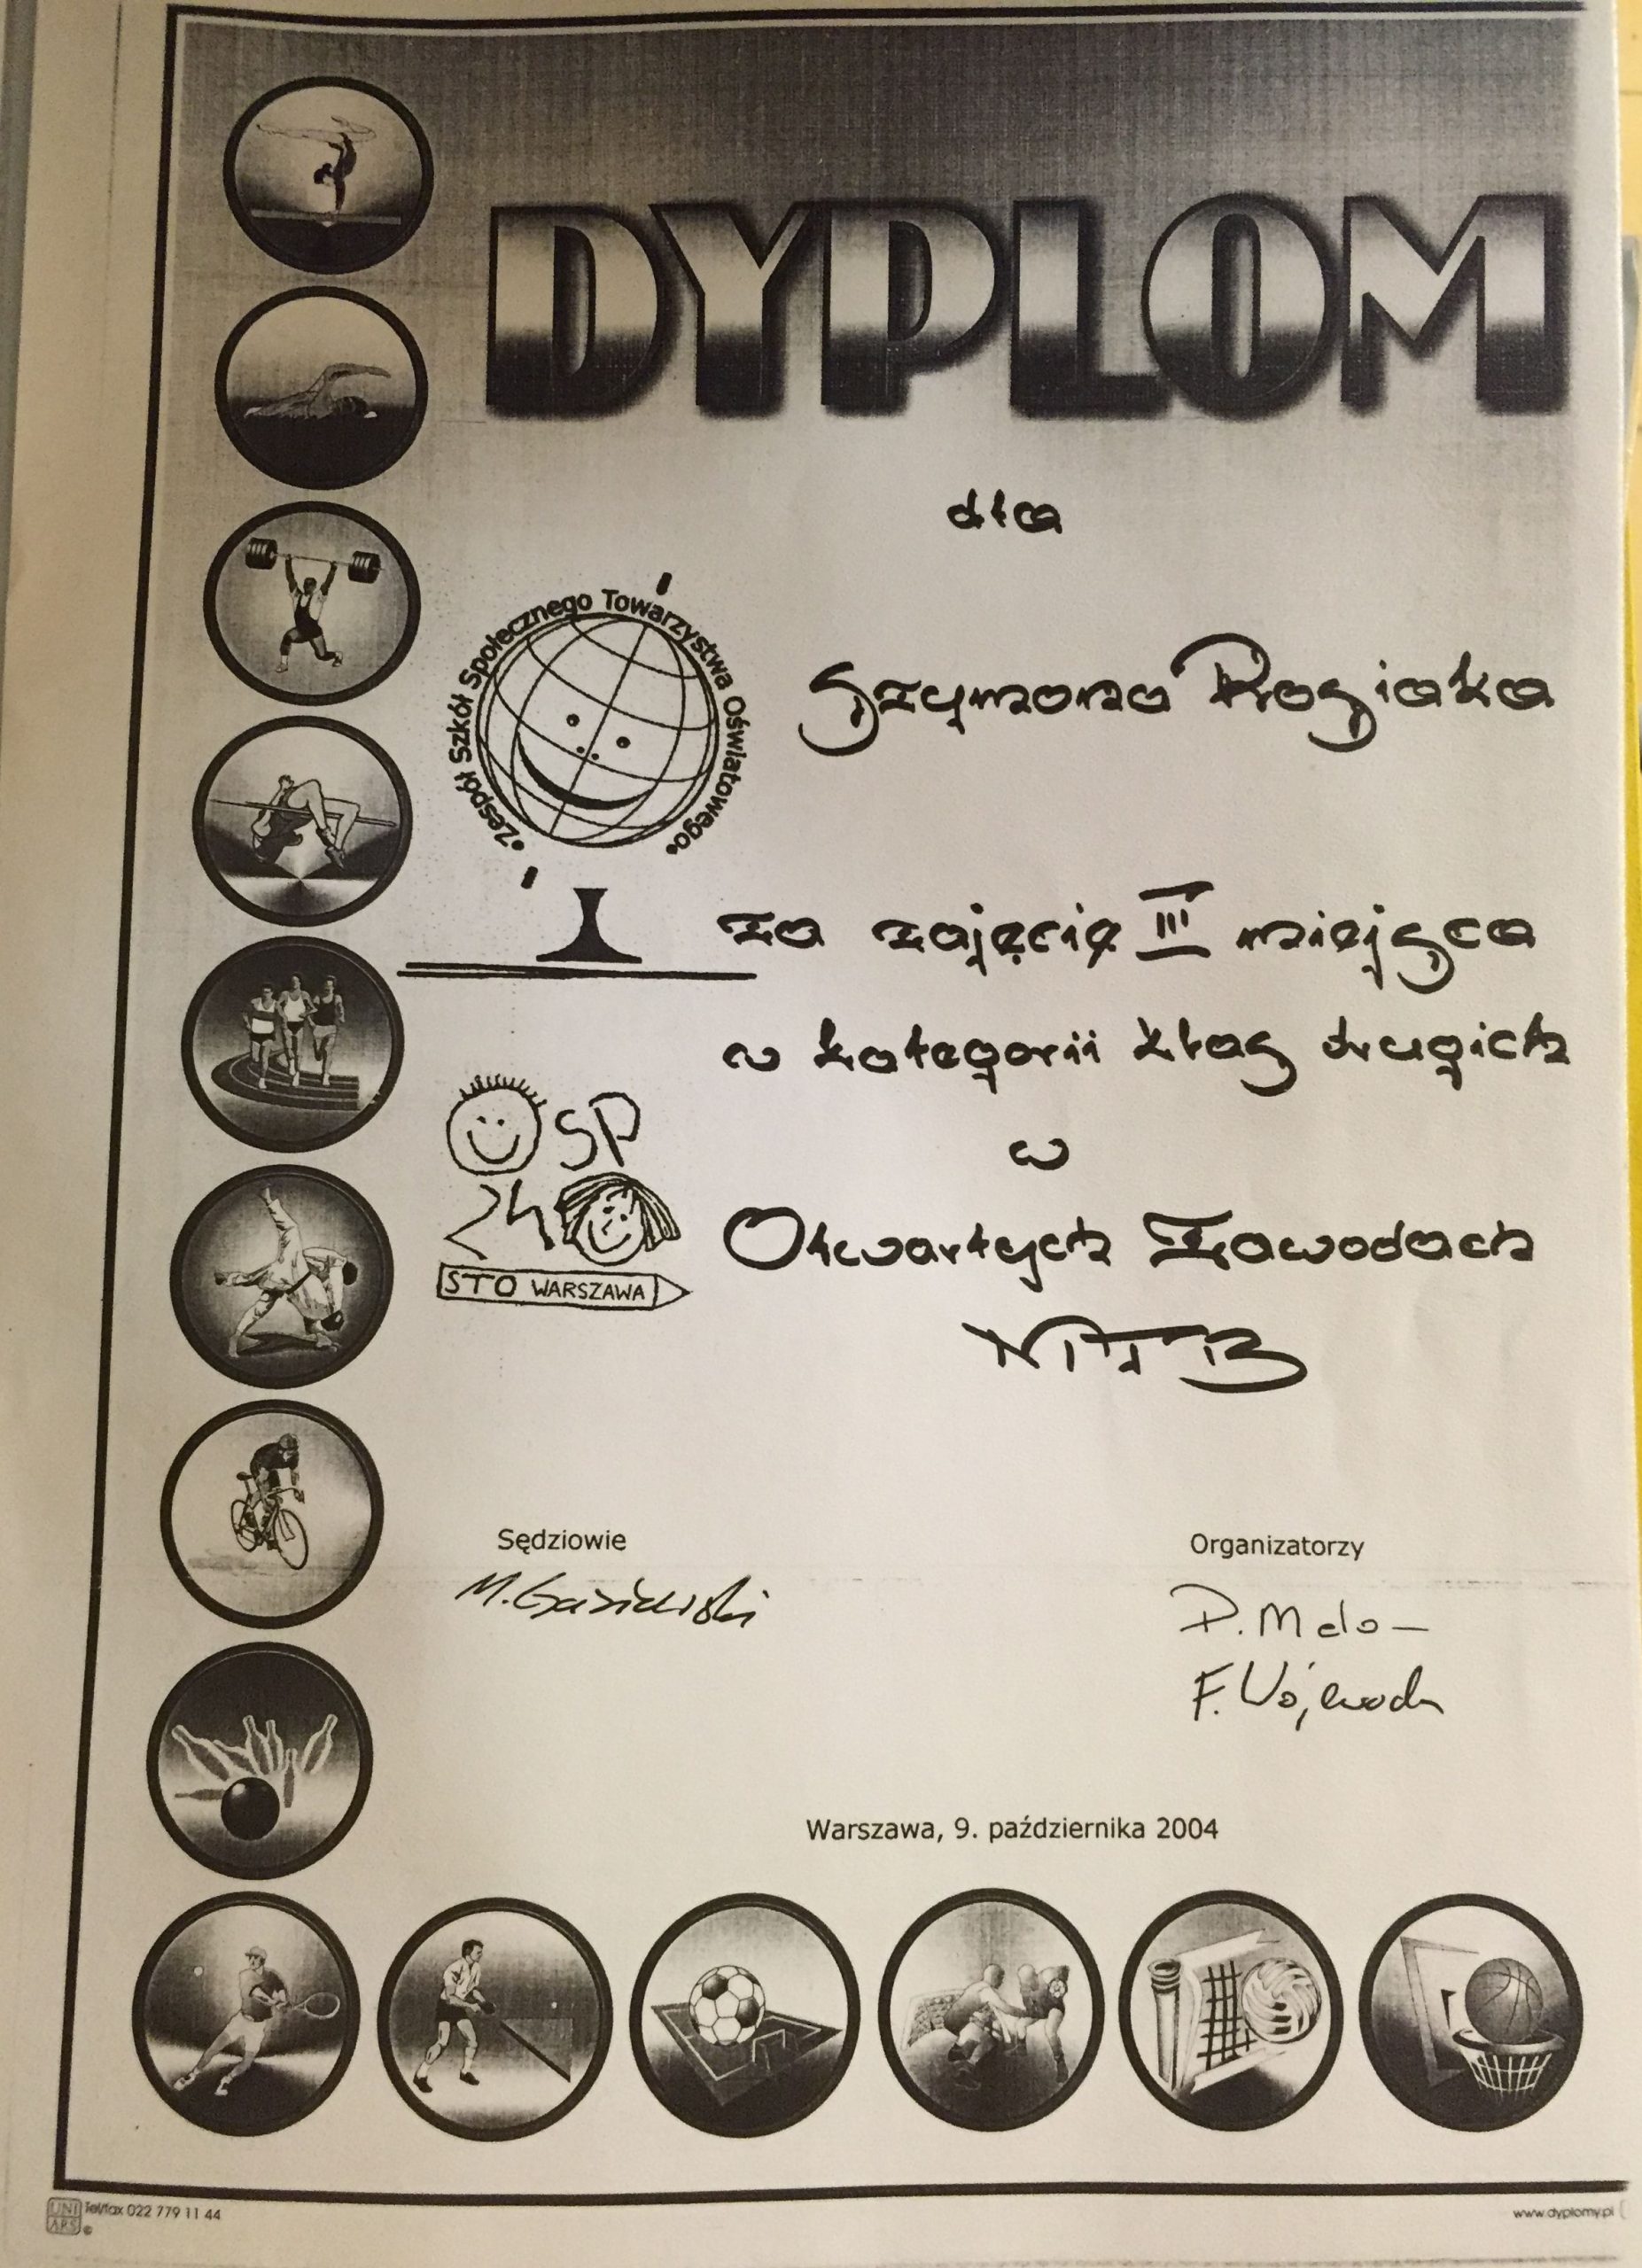 DYPLOM
dla
•Zespół Szkół Społecznego Towarzystwa Oświatowego•
Szymona Rosiaka
za zajęcie III miejsca
w kategorii klas drugich
w
Otwartych Zawodach
MTB
SP
24
STO WARSZAWA
Sędziowie
Organizatorzy
M.
P. Melo
F.
Warszawa, 9. października 2004
UNI
ARS
©
Tel/fax 022 779 11 44
www.dyplomy.pl